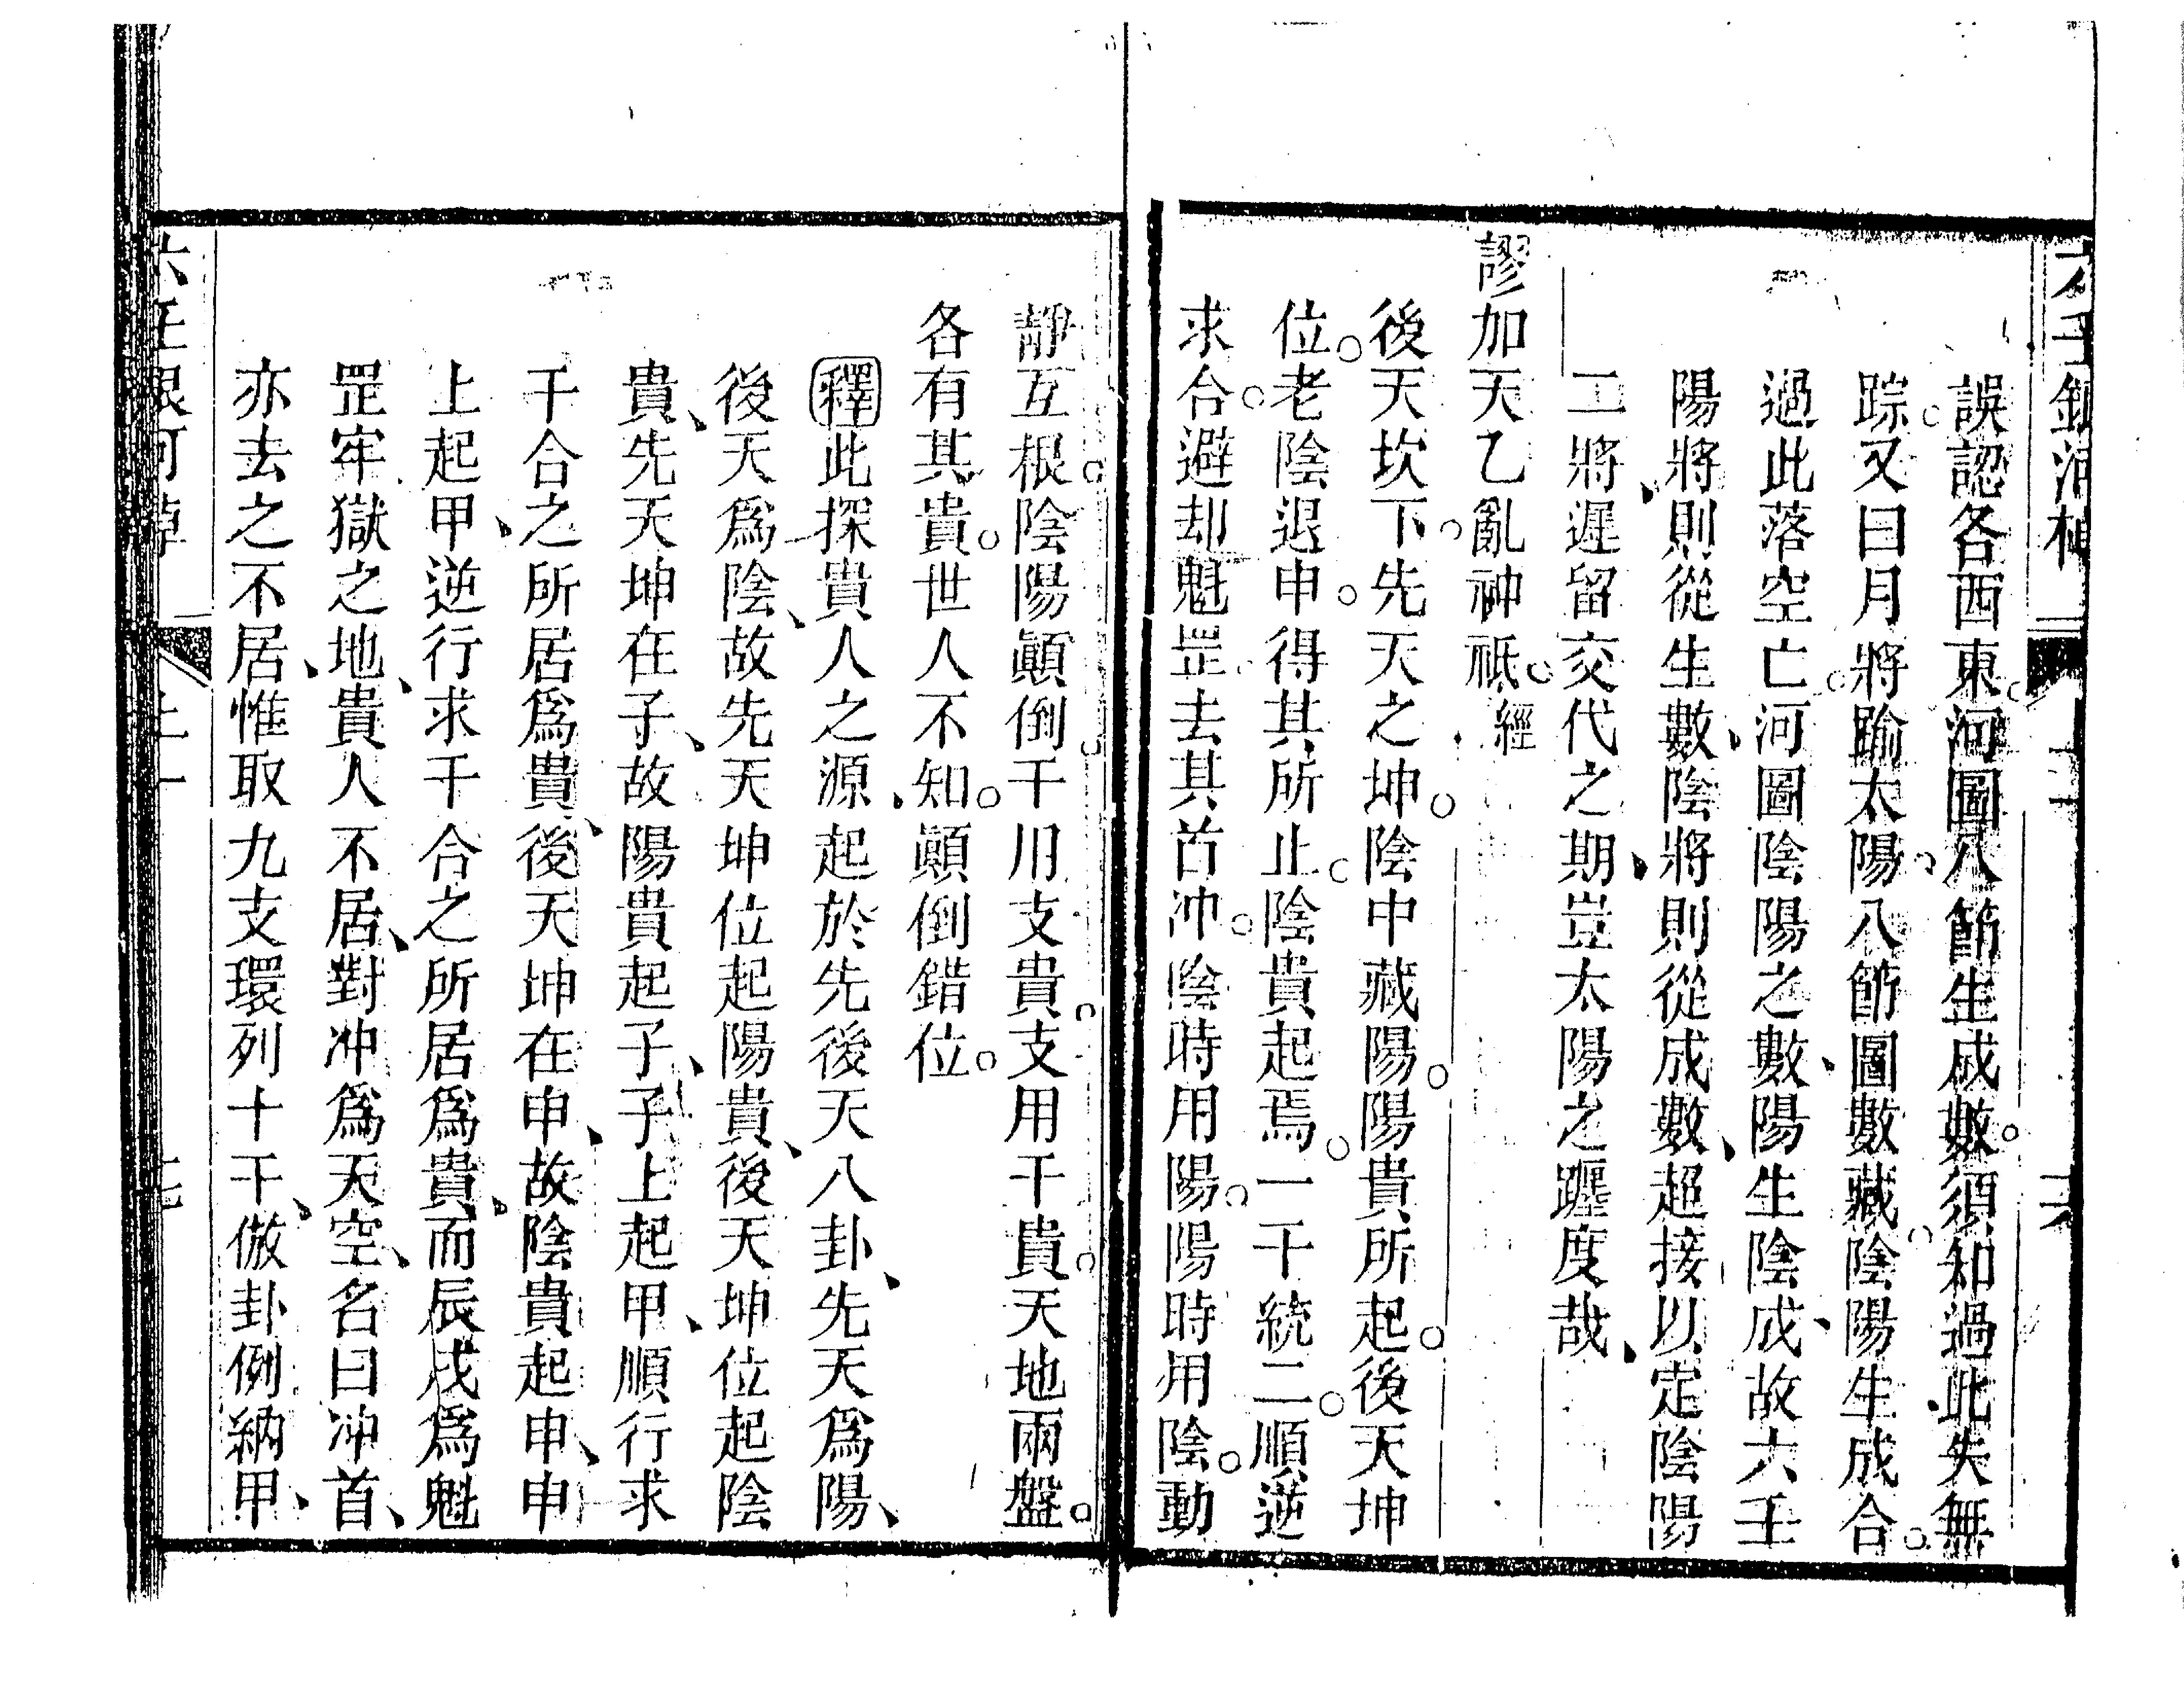 誤認各西東河圖八節生成數須知過此失無
踪又曰月將踰太陽八節圖數藏陰陽生成合
過此落空亡河圖陰陽之數陽生陰成故六壬
陽將則從生數陰將則從成數超接以定陰陽
二將遲留交代之期豈太陽之躔度哉
謬加天乙亂神祗經
後天坎下先天之坤陰中藏陽陽貴所起後天坤
位老陰退申得其所止陰貴起焉一干統二順逆
求合避却魁罡去其首冲陰時用陽陽時用陰動
靜互根陰陽顚倒干用支貴支用干貴天地兩盤
各有其貴世人不知顚倒錯位
釋此探貴人之源起於先後天八卦先天爲陽
後天爲陰故先天坤位起陽貴後天坤位起陰
貴先天坤在子故陽貴起子子上起甲順行求
干合之所居爲貴後天坤在申故陰貴起申申
上起甲逆行求干合之所居爲貴而辰戌爲魁
罡牢獄之地貴人不居對冲爲天空名曰冲首
亦去之不居惟取九支環列十干倣卦例納甲